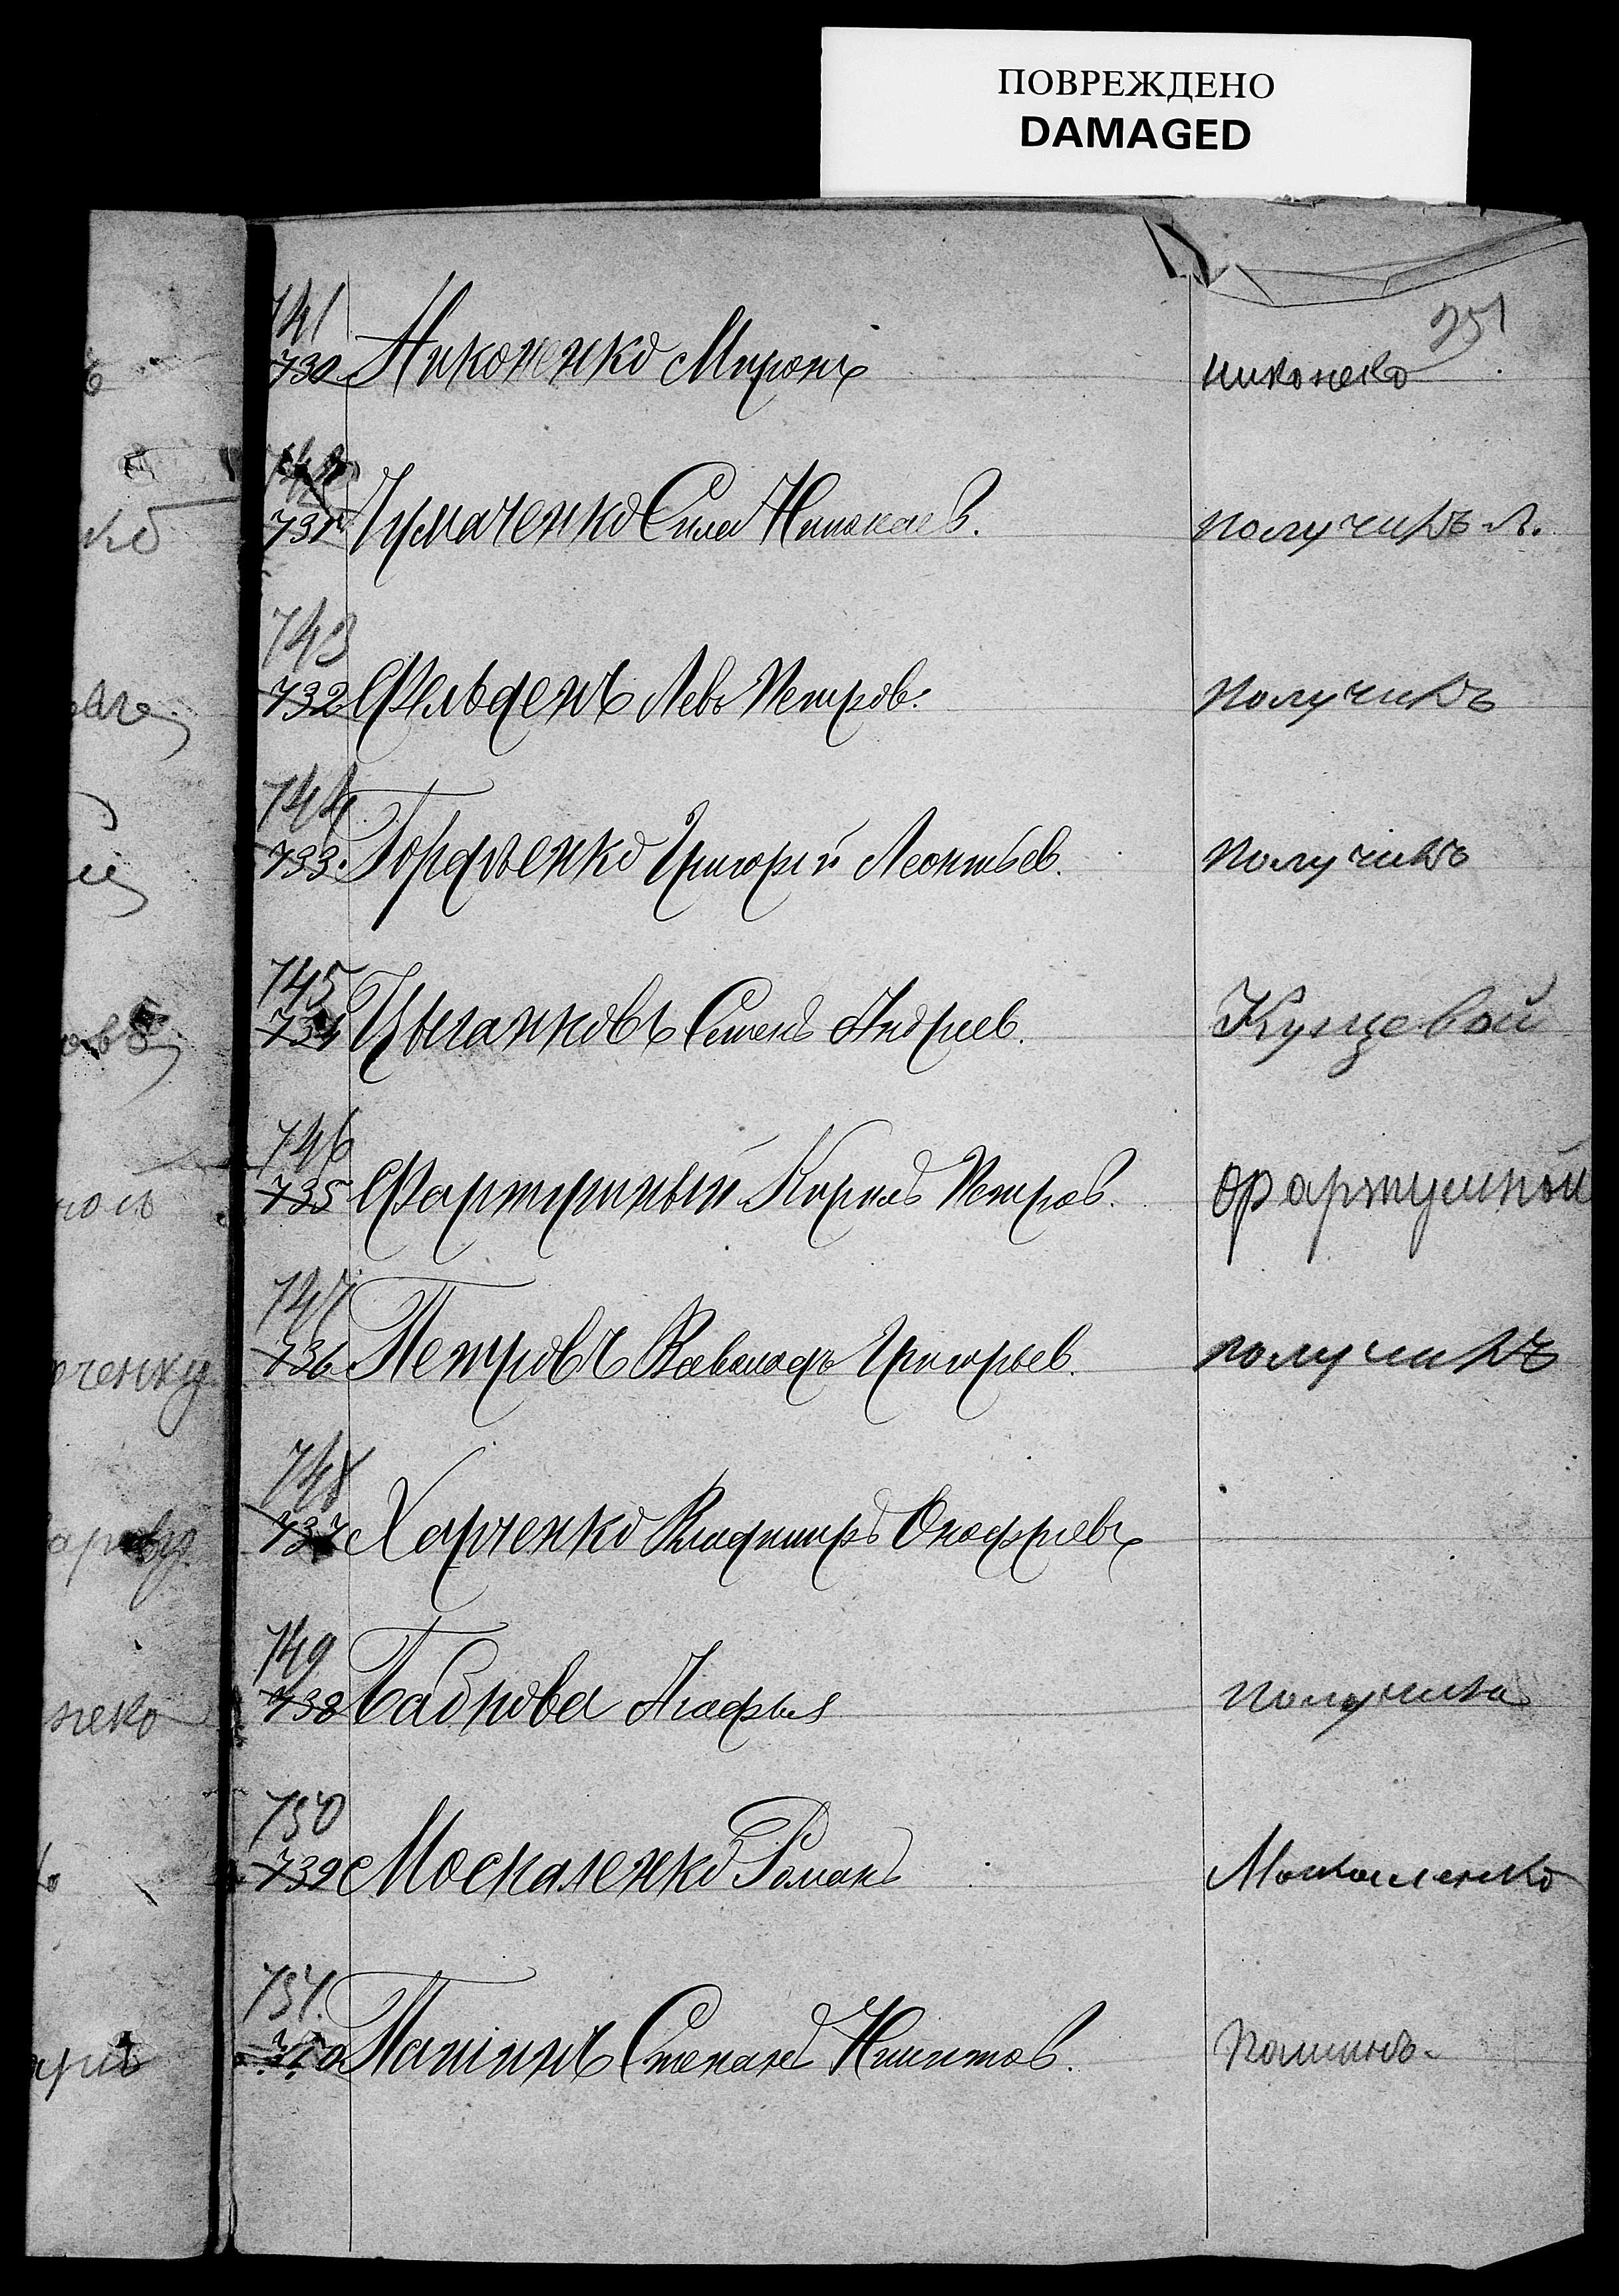 ПОВРЕЖДЕНО
DAMAGED
251
741
730 Никоненко Миронъ никонеко
742
731 Чумаченко Сила Николаев. получилъ Л.
743
732 Фельденъ Левъ Петров. получилъ
744
733. Гордѣенко Григорій Леонтьев. получилъ
745
734 Цыганковъ Семенъ Андреев. Купцевой
746
735 Фартушный Кирилъ Петров. Фартушной
747
736 Петровъ Всеволодъ Григорьев. получилъ
748
737 Харченко Владимиръ Онофріевъ
749
738 Агафья получила
750
739 Москаленко Романъ Москаленко
751.
740 Пашинъ Степанъ Никитов. Пашинъ.